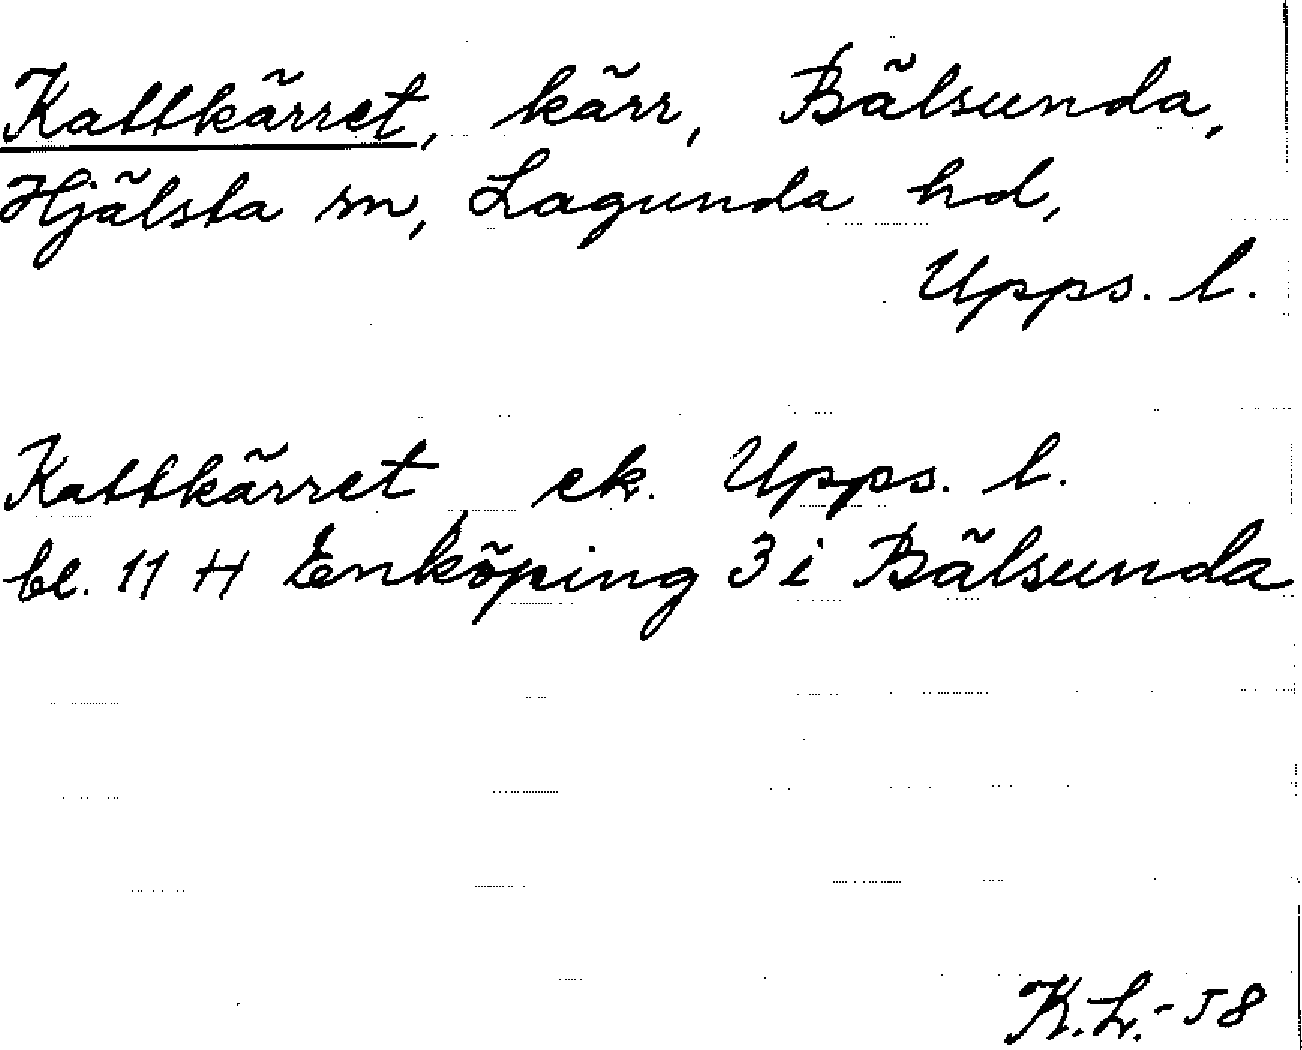 Kattkärret, kärr, Bälsunda,
Hjälsta sn, Lagunda hd,
Upps. l.
Kattkärret ek. Upps. l.
bl. 11 H Enköping 3 i Bälsunda
K.L.-58